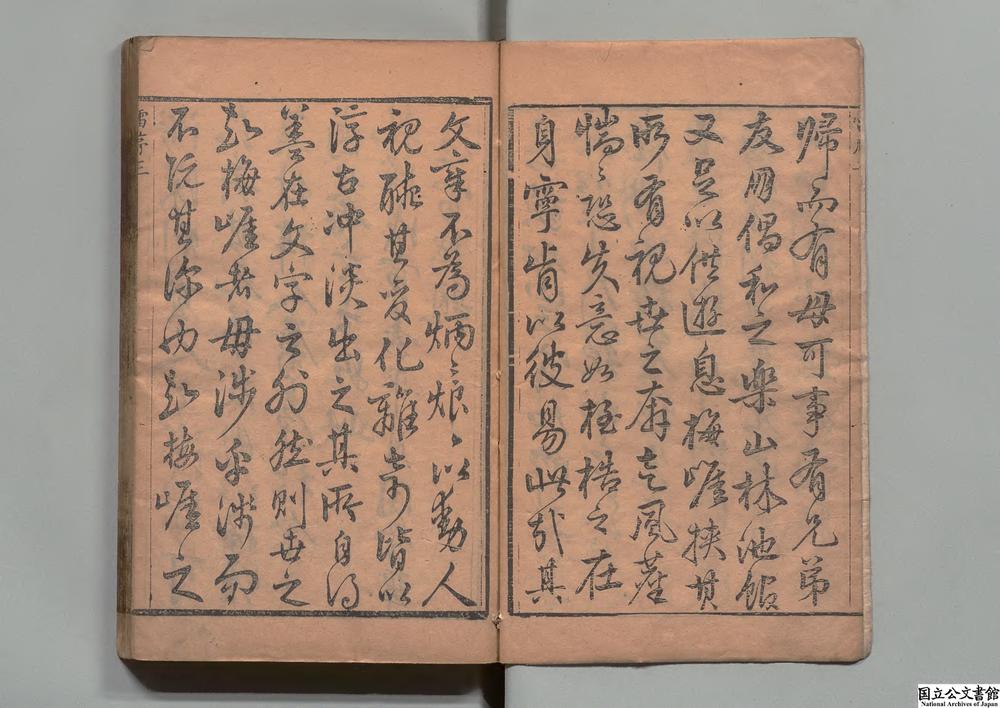 歸而有母可事有兄弟
友朋倡和之樂山林池館
又足以供遊息梅崖挾其
所有視世之奔走風塵
惴〻恐失意如桎梏之在
身寧肯以彼易此哉其
文章不為炳〻烺〻以動人
視聽其變化離奇皆以
淳古冲淡出之其所自得
蓋在文字之外然則世之
知梅崖者毋涉乎淺而
不既其深也知梅崖之
国立公文書館
National Archives of Japan